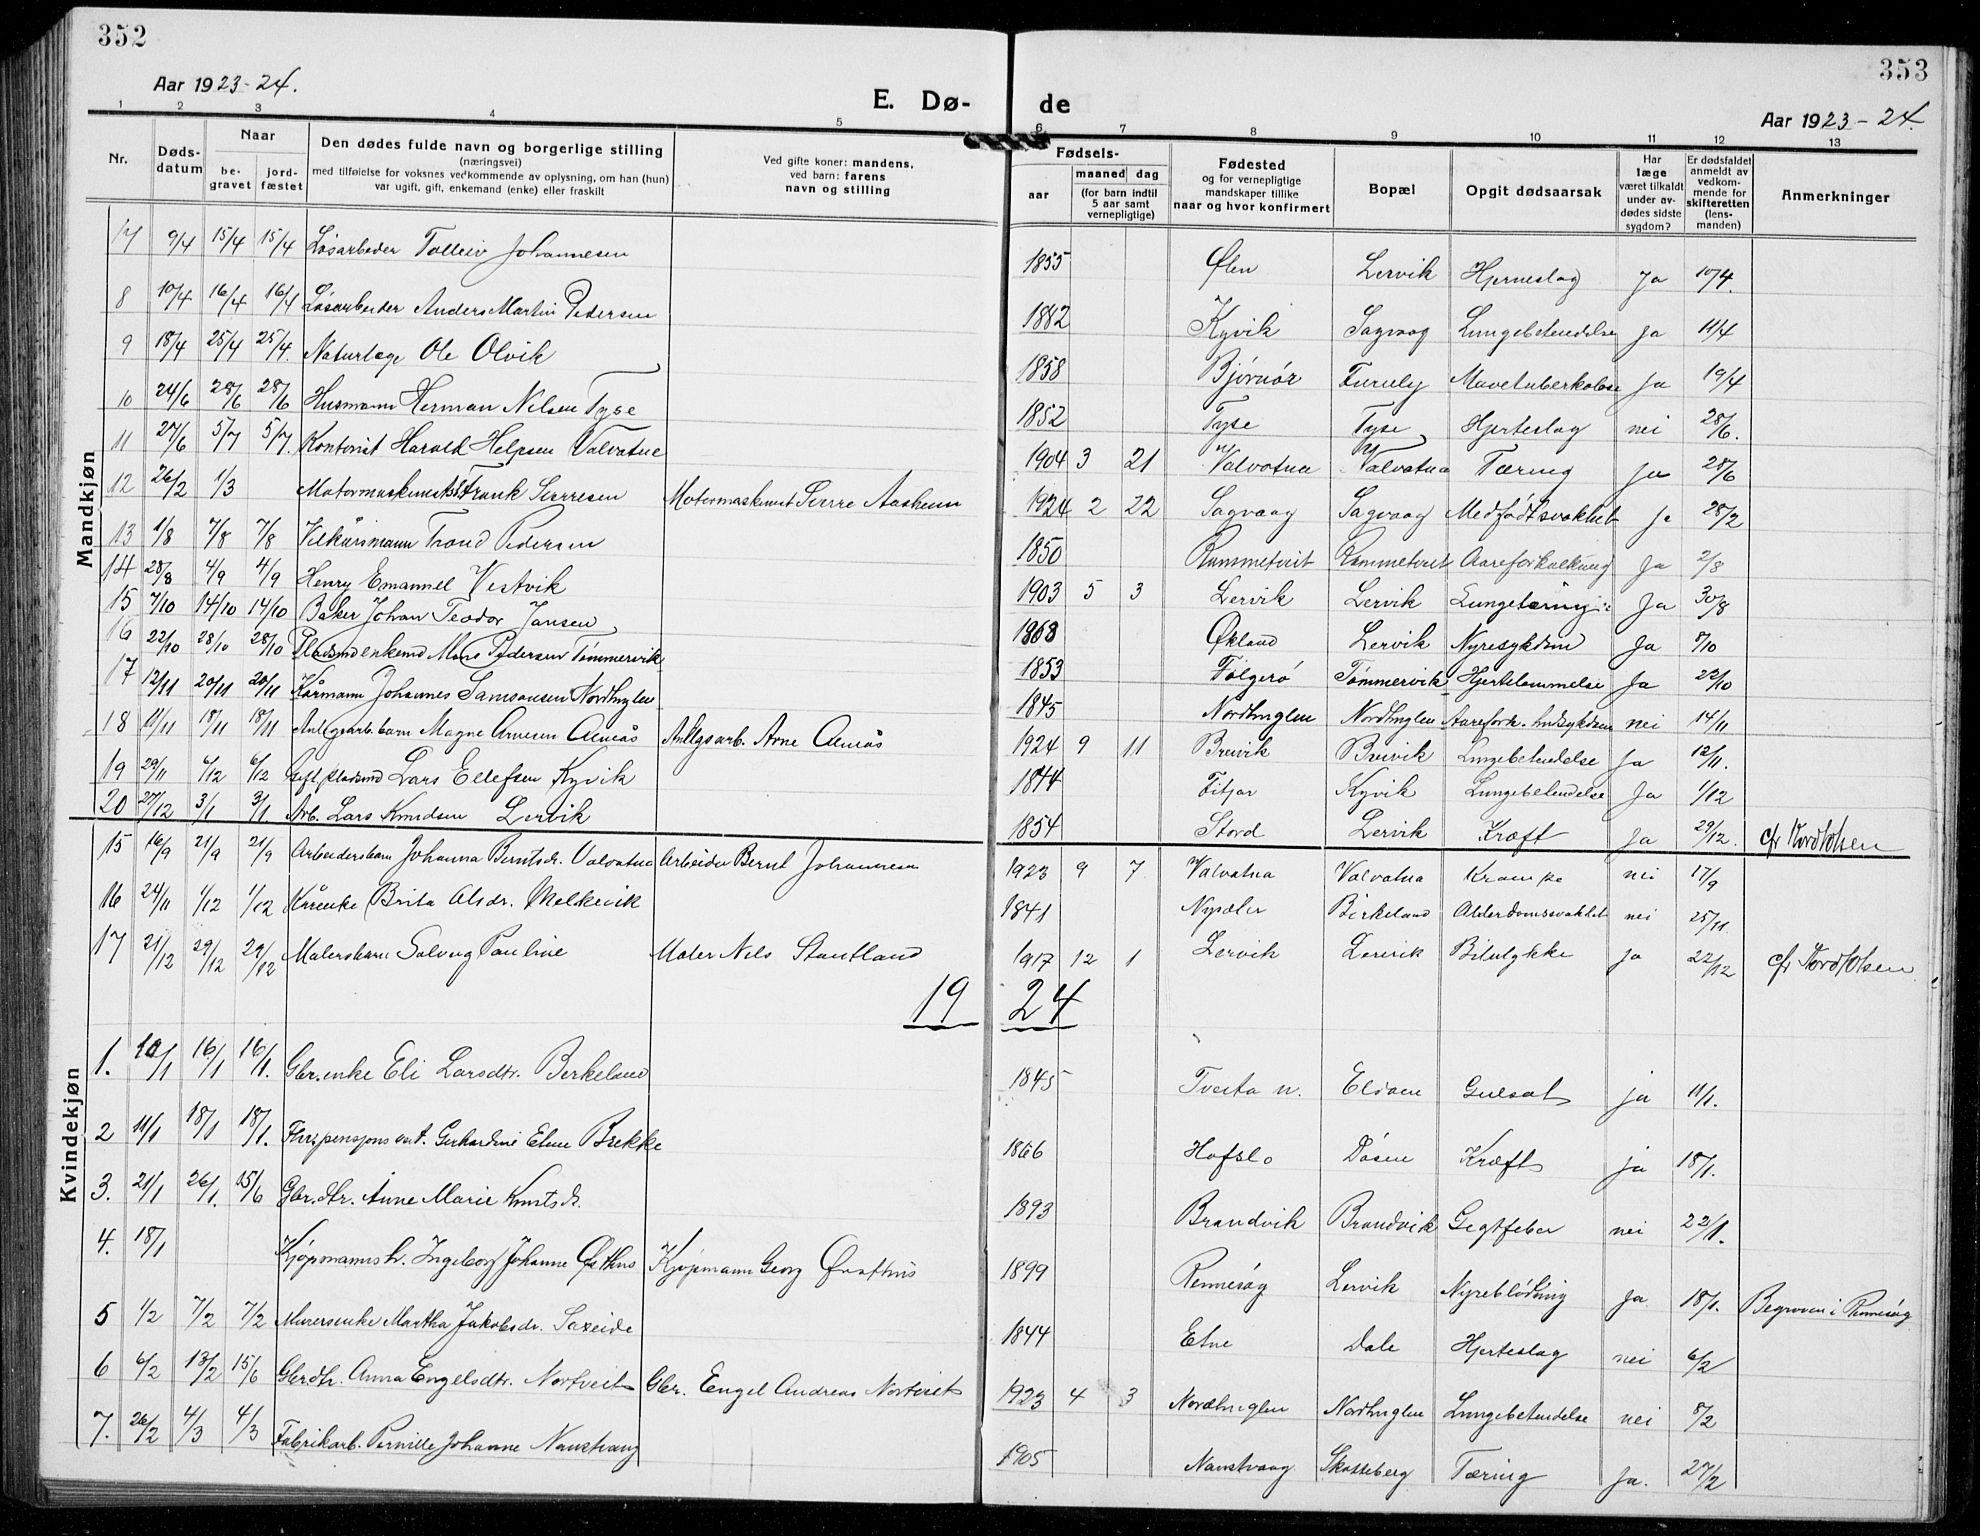 352
353
Aar 1923-24.
E. Dø-
de
Aar 1923-24.
1 2 3 4 5 6 7 8 9 10 11 12 13
Nr.
Døds-datum
Naar
be-gravet
jord-fæstet
Den dødes fulde navn og borgerlige stilling
(næringsvei)
med tilføielse for voksnes vedkommende av oplysning, om han (hun)
var ugift, gift, enkemand (enke) eller fraskilt
Ved gifte koner: mandens,
ved barn: farens
navn og stilling
Fødsels-
aar
maaned dag
(for barn indtil
5 aar samt
vernepligtige)
Fødested
og for vernepligtige
mandskaper tillike
naar og hvor konfirmert
Bopæl
Opgit dødsaarsak
Har
læge
været tilkaldt
under av-
dødes sidste
sygdom?
Er dødsfaldet
anmeldt av
vedkom-
mende for
skifteretten
(lens-
manden)
Anmerkninger
Mandkjøn
7 9/4 15/4 15/4 Løsarbeder Tolleiv Johannesen 1855 Ølen Lervik Hjerneslag ja 10/4.
8 10/4 16/4 16/4 Løsarbeider Anders Martin Pedersen 1882 Kyvik Sagvaag Lungebetendelse ja 11/4
9 18/4 25/4 25/4. Naturlæge Ole Olvik 1858 Bjørnør Furuly Mavetuberkulose ja 19/4
10 24/6 28/6 28/6 Husmann Herman Nilsen Tyse 1852 Tyse Tyse Hjerteslag nei 28/6.
11 27/6 5/7 5/7. Kontorist Harald Helgesen Valvatne 1904 3 21 Valvatna Valvatna Tæring ja 28/6
12 26/2 1/3 Motormaskinists Frank Sverresen Motormaskinist Sverre Aasheim 1924 2 22 Sagvaag Sagvaag Medfødt svakhet ja 28/2
13 1/8 7/8 7/8 Vilkårsmann Trond Pedersen 1850 Rammetveit Rommetveit Aareforkalkning ja 2/8
14 28/8 4/9 4/9 Henry Emanuel Vestvik 1903 5 3 Lervik Lervik Lungetæring ja 30/8
15 7/10 14/10 14/10 Baker Johan Teodor Jansen 1868 Økland Lervik Nyresykdom ja 8/10
16 22/10 28/10 28/10 Pladsmdenkemd Mons Pedersen Tømmervik 1853 Folgerø Tømmervik Hjertelammelse ja 22/10
17 12/11 20/11 20/11 Kårmann Johannes Samsonsen Nordhuglen 1845 Nordhuglen Nordhuglen Aarefork. nei 14/11
18 11/11 18/11 18/11 Anlegsarb. barn Magne Arnesen Almås Anlegsarb. Arne Almås 1924 9 11 Breivik Breivik Lungebetendelse ja 12/11.
19 29/11 6/12 6/12 Lars Ellefsen Kyvik 1844 Fitjar Kyvik Lungebetendelse ja 1/12
20 27/12 3/1 3/1 Arb. Lars Knudsen Lervik 1854 Stord Lervik Kræft ja 29/12. cfr
Kvindekjøn
15 16/9 21/9 21/9 Arbeidersbarn Johanna Berntsdr. Valvatna Arbeider Bernt Johannesen 1923 9 7 Valvatna Valvatna Krampe nei 17/9
16 24/11 1/12 1/12 Kårenke Brita Olsdr. Melkevik 1841 Birkeland Alderdomssvakhet nei 25/11
17 21/12 29/12 29/12 Malersbarn Solveig Pauline Maler Nils Stautland 1917 12 1 Lervik Lervik Bilulykke ja 22/12 cfr
19 24
1. 10/1 16/1 16/1. Gbr.enke Eli Larsdtr. Birkeland 1845 Tveita n. Eldøen Gulsot ja 11/1.
2 11/1 18/1 18/1. Gerhardine Elene Brekke 1866 Hofslo Døsen Kræft ja 18/1.
3. 21/1 26/1. 15/6 Gbr.dtr. Anne Marie Knutsdr. 1893 Brandvik Brandvik Gigtfeber nei 22/1.
4. 18/1 Kjøpmanns h. Ingeborg Johanne Østhus Kjøpmann Georg Østhus 1899 Rennesøy Lervik Nyreblødning ja 18/1. Begraven i Rennesøy
5 1/2 7/2 7/2 Murersenke Martha Jakobsdr. Saxeide 1844 Etne Dale Hjerteslag nei 6/2
6 6/2 13/2 15/6 Gbrdtr. Anna Engelsdtr. Nortveit Gbr. Engel Andreas Nortveit 1923 4 3 Nordhuglen Nordhuglen Lungebetendelse nei 8/2
7. 26/2 4/3 4/3 Fabrikarb. Pernille Johanne Naustvaag 1905 Naustvaag Skotteberg Tæring ja. 27/2